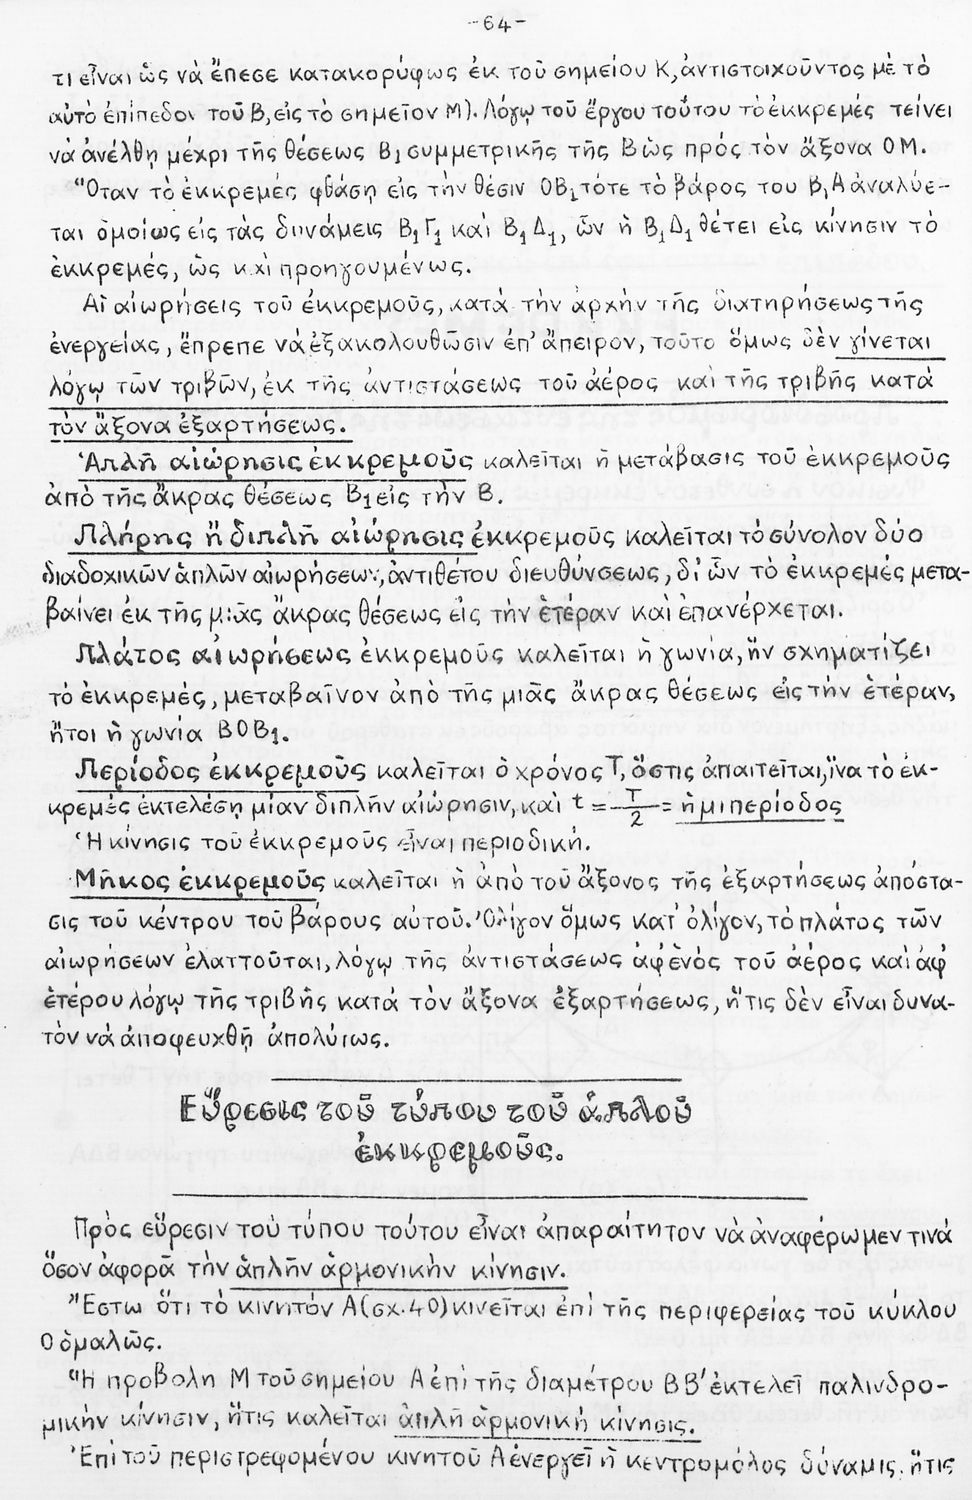 -64-
τι εἶναι ὡς νὰ ἔπεσε κατακορύφως ἐκ τοῦ σημείου Κ, ἀντιστοιχοῦντος μὲ τὸ
αὐτὸ ἐπίπεδον τοῦ Β, εἰς τὸ σημεῖον Μ). Λόγῳ τοῦ ἔργου τούτου τὸ ἐκκρεμές τείνει
νὰ ἀνέλθῃ μέχρι τῆς θέσεως Β₁ συμμετρικῆς τῆς Β ὡς πρός τὸν ἄξονα ΟΜ.
Ὅταν τὸ ἐκκρεμές φθάσῃ εἰς τὴν θέσιν ΟΒ₁ τότε τὸ βάρος του Β₁Α ἀναλύε-
ται ὁμοίως εἰς τὰς δυνάμεις Β₁Γ₁ καὶ Β₁Δ₁, ὧν ἡ Β₁Δ₁ θέτει εἰς κίνησιν τὸ
ἐκκρεμές, ὡς καὶ προηγουμένως.
Αἱ αἰωρήσεις τοῦ ἐκκρεμοῦς, κατὰ τὴν ἀρχὴν τῆς διατηρήσεως τῆς
ἐνεργείας, ἔπρεπε νὰ ἐξακολουθῶσιν ἐπ' ἄπειρον, τοῦτο ὅμως δὲν γίνεται
λόγῳ τῶν τριβῶν, ἐκ τῆς ἀντιστάσεως τοῦ ἀέρος καὶ τῆς τριβῆς κατὰ
τὸν ἄξονα ἐξαρτήσεως.
Ἁπλῆ αἰώρησις ἐκκρεμοῦς καλεῖται ἡ μετάβασις τοῦ ἐκκρεμοῦς
ἀπὸ τῆς ἄκρας θέσεως Β₁ εἰς τὴν Β.
Πλήρης ἢ διπλῆ αἰώρησις ἐκκρεμοῦς καλεῖται τὸ σύνολον δύο
διαδοχικῶν ἁπλῶν αἰωρήσεων, ἀντιθέτου διευθύνσεως, δι' ὧν τὸ ἐκκρεμές μετα-
βαίνει ἐκ τῆς μιᾶς ἄκρας θέσεως εἰς τὴν ἑτέραν καὶ ἐπανέρχεται.
Πλάτος αἰωρήσεως ἐκκρεμοῦς καλεῖται ἡ γωνία, ἣν σχηματίζει
τὸ ἐκκρεμές, μεταβαῖνον ἀπὸ τῆς μιᾶς ἄκρας θέσεως εἰς τὴν ἑτέραν,
ἤτοι ἡ γωνία ΒΟΒ₁.
Περίοδος ἐκκρεμοῦς καλεῖται ὁ χρόνος Τ, ὅστις ἀπαιτεῖται, ἵνα τὸ ἐκ-
κρεμές ἐκτελέσῃ μίαν διπλῆν αἰώρησιν, καὶ t = Τ/2 = ἡμιπερίοδος
Ἡ κίνησις τοῦ ἐκκρεμοῦς εἶναι περιοδική.
Μῆκος ἐκκρεμοῦς καλεῖται ἡ ἀπὸ τοῦ ἄξονος τῆς ἐξαρτήσεως ἀπόστα-
σις τοῦ κέντρου τοῦ βάρους αὐτοῦ. Ὀλίγον ὅμως κατ' ὀλίγον, τὸ πλάτος τῶν
αἰωρήσεων ἐλαττοῦται, λόγῳ τῆς ἀντιστάσεως ἀφ' ἑνὸς τοῦ ἀέρος καὶ ἀφ'
ἑτέρου λόγῳ τῆς τριβῆς κατὰ τὸν ἄξονα ἐξαρτήσεως, ἥτις δὲν εἶναι δυνα-
τὸν νὰ ἀποφευχθῇ ἀπολύτως.
Εὕρεσις τοῦ τύπου τοῦ ἁπλοῦ
ἐκκρεμοῦς.
Πρὸς εὕρεσιν τοῦ τύπου τούτου εἶναι ἀπαραίτητον νὰ ἀναφέρωμεν τινά
ὅσον ἀφορᾶ τὴν ἁπλῆν ἁρμονικὴν κίνησιν.
Ἔστω ὅτι τὸ κινητόν Α (σχ. 40) κινεῖται ἐπὶ τῆς περιφερείας τοῦ κύκλου
Ο ὁμαλῶς.
Ἡ προβολὴ Μ τοῦ σημείου Α ἐπὶ τῆς διαμέτρου ΒΒ' ἐκτελεῖ παλινδρο-
μικὴν κίνησιν, ἥτις καλεῖται ἁπλῆ ἁρμονικὴ κίνησις.
Ἐπὶ τοῦ περιστρεφομένου κινητοῦ Α ἐνεργεῖ ἡ κεντρομόλος δύναμις, ἥτις